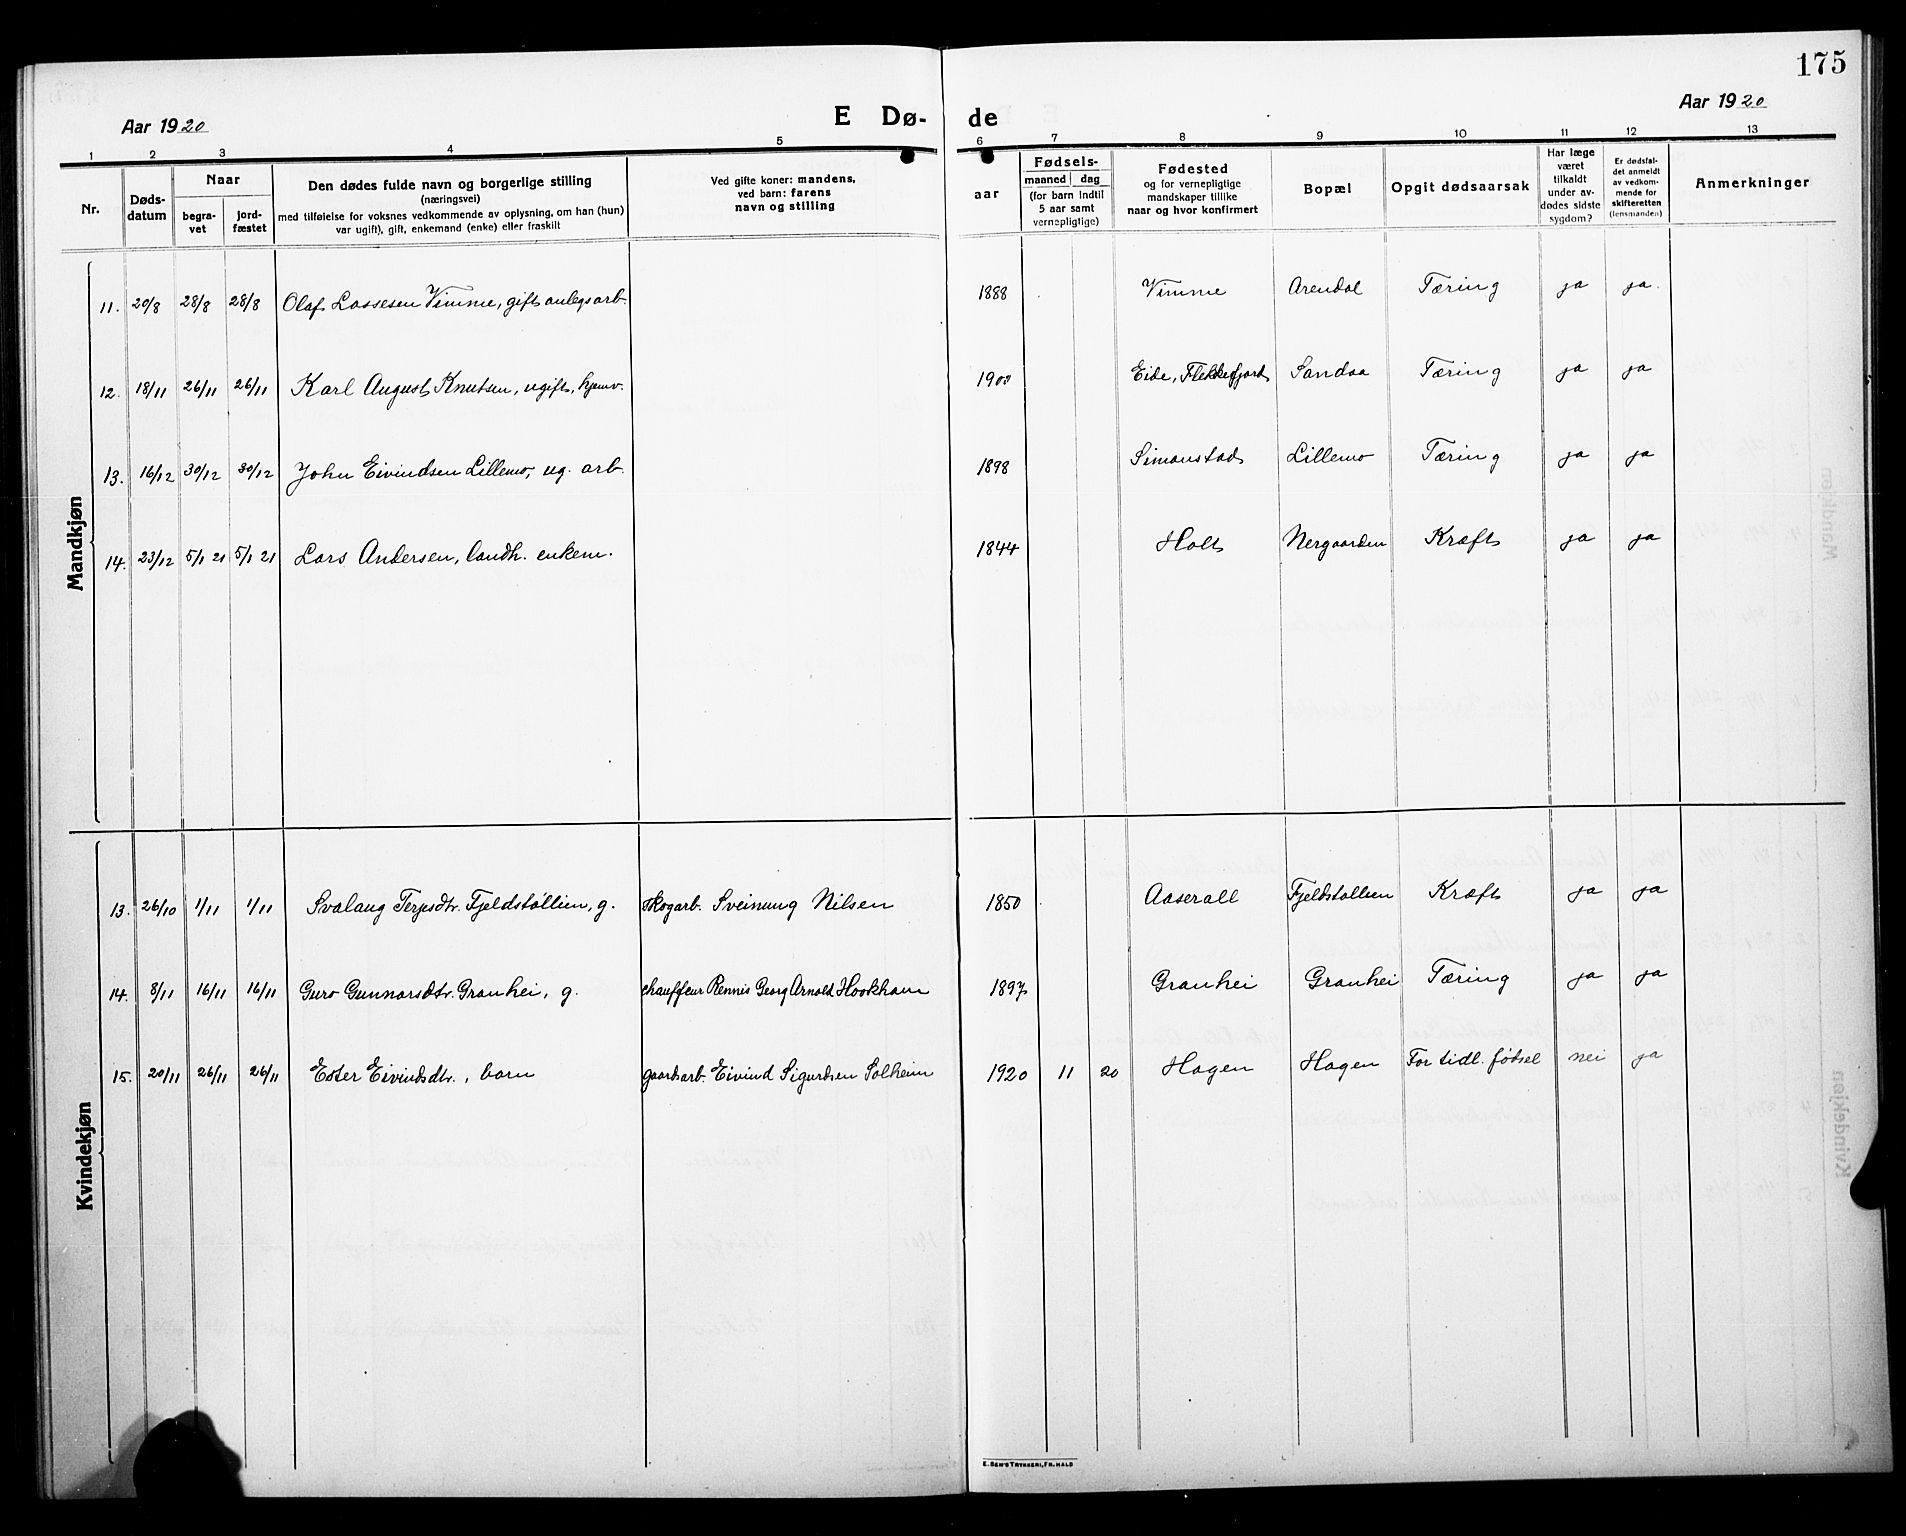 175
Aar 1920
E Dø-
de
Aar 1920
1 2 3 4 5 6 7 8 9 10 11 12 13
Nr.
Døds-
datum
Naar
begra-
vet
jord-
fæstet
Den dødes fulde navn og borgerlige stilling
(næringsvei)
med tilføielse for voksnes vedkommende av oplysning, om han (hun)
var ugift), gift, enkemand (enke) eller fraskilt
Ved gifte koner: mandens,
ved barn: farens
navn og stilling
aar
Fødsels-
maaned dag
(for barn indtil
5 aar samt
vernepligtige)
Fødested
og for vernepligtige
mandskaper tillike
naar og hvor konfirmert
Bopæl
Opgit dødsaarsak
Har læge
været
tilkaldt
under av-
dødes sidste
sygdom?
Er dødsfal-
det anmeldt
av vedkom-
mende for
skifteretten
(lensmanden)
Anmerkninger
Mandkjøn
11. 20/8 28/8 28/8 Olaf Lassesen Vimme, gift anlegsarb. 1888 Vimme Arendal Tæring ja ja.
12. 18/11 26/11 26/11 Karl August Knutsen, ugift, hjemv. 1900 Eide, Flekkefjord Sandaa Tæring ja ja
13. 16/12 30/12 30/12 John Eivindsen Lillemo, ug. arb. 1898 Simonstad Lillemo Tæring ja ja
14. 23/12 5/1 21 5/1 21 Lars Andersen, landh. enkem. 1844 Holt Nergaarden Kræft ja ja
Kvindekjøn
13. 26/10 1/11 1/11 Svalaug Terjesdtr. Fjeldstøllien, g. skogarb. Sveinung Nilsen 1850 Aaserall Fjeldstøllien Kræft ja ja
14. 8/11 16/11 16/11 Guro Gunnarsdtr. Granhei, g. chauffeur Rennis Georg Arnold Hookham 1897 Granhei Granhei Tæring ja ja
15. 20/11 26/11 26/11 Ester Eivindsdtr., barn gaardsarb. Eivind Sigurdsen Solheim 1920 11 20 Hagen Hagen For tidl. fødsel nei ja
E. SEM'S TRYKKERI, FR. HALD